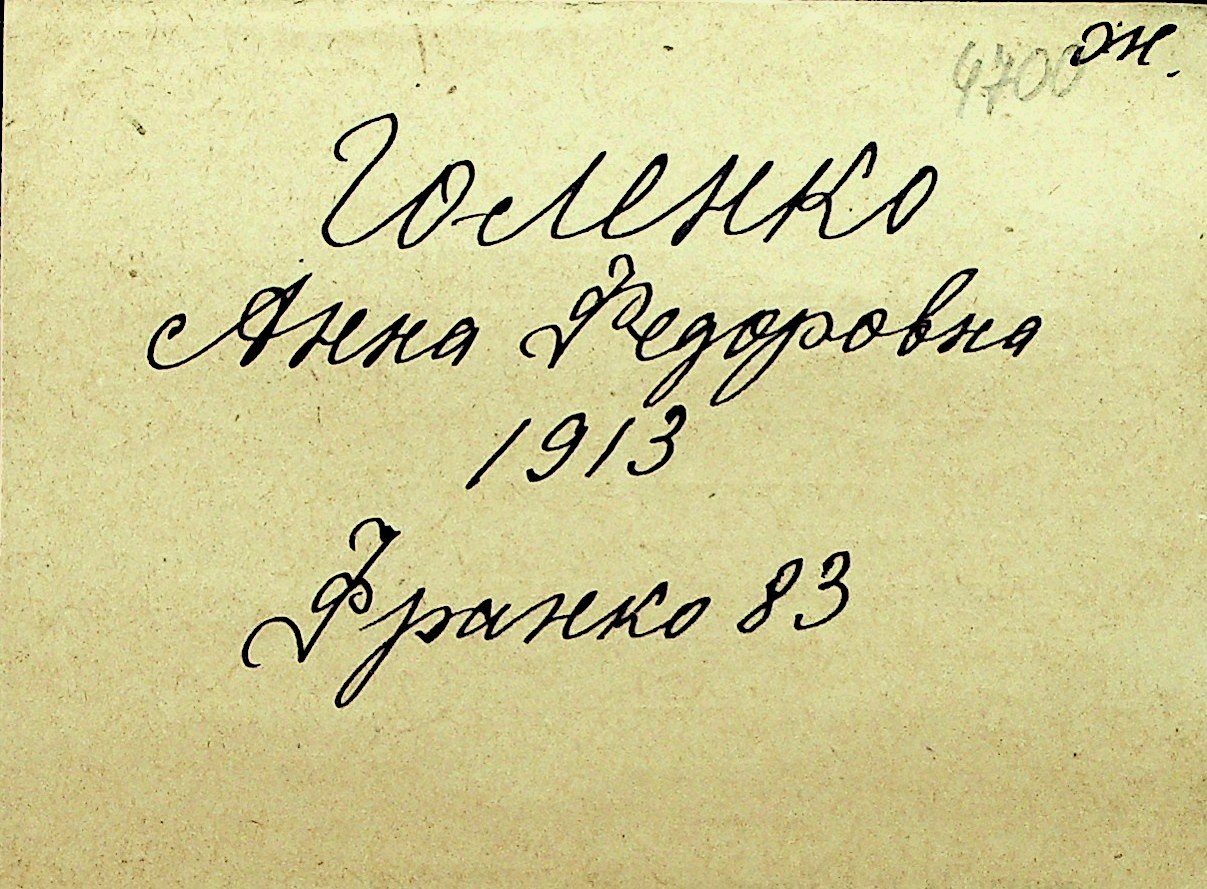 ж.
4700
Голенко
Анна Федоровна
1913
Франко 83